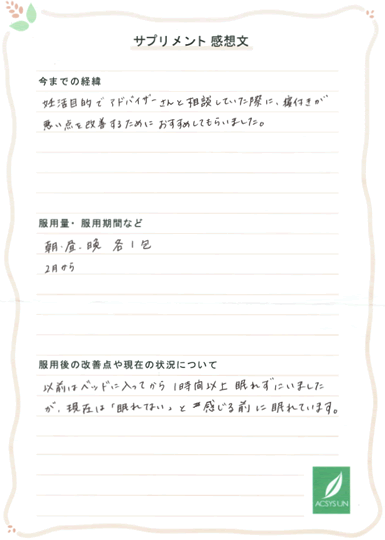 サプリメント 感想文
今までの経緯
妊活目的で アドバイザーさんと相談していた際に、寝付きが
悪い点を改善するために おすすめしてもらいました。
服用量・服用期間など
朝・昼・晩 各1包
2月から
服用後の改善点や現在の状況について
以前はベッドに入ってから 1時間以上 眠れずにいました
が、現在は「眠れない」と 感じる前に眠れています。
ACSYS UN